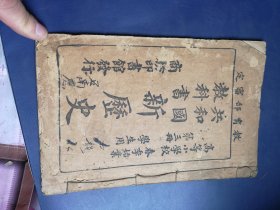 教育部審定
共和國教科書
新歷史
高等小學校
春季始業
第三冊
學生用
商務印書館發行